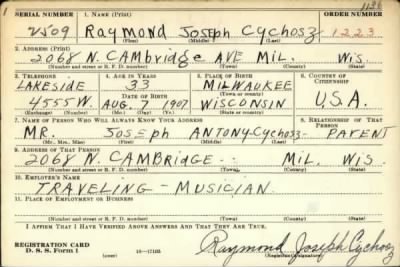 1136
SERIAL NUMBER 1. NAME (Print) ORDER NUMBER
V509 Raymond Joseph Cychosz 1223
(First) (Middle) (Last)
2. ADDRESS (Print)
2068 N. CAMbridge AVE MiL. Wis.
(Number and street or R. F. D. number) (Town) (County) (State)
3. TELEPHONE 4. AGE IN YEARS 5. PLACE OF BIRTH 6. COUNTRY OF CITIZENSHIP
LAKESIDE 33 MILWAUKEE
(Town or county)
4555W. AUG. 7 1907 WISCONSIN U.S.A.
(Exchange) (Number) (Mo.) (Day) (Yr.) (State or country)
7. NAME OF PERSON WHO WILL ALWAYS KNOW YOUR ADDRESS 8. RELATIONSHIP OF THAT PERSON
MR. JOSEPH ANTONY Cychosz - PARENT
(Mr., Mrs., Miss) (First) (Middle) (Last)
9. ADDRESS OF THAT PERSON
2068 N. CAMBRIDGE - MIL. WIS
(Number and street or R. F. D. number) (Town) (County) (State)
10. EMPLOYER'S NAME
TRAVELING - MUSICIAN
11. PLACE OF EMPLOYMENT OR BUSINESS
(Number and street or R. F. D. number) (Town) (County) (State)
I AFFIRM THAT I HAVE VERIFIED ABOVE ANSWERS AND THAT THEY ARE TRUE.
REGISTRATION CARD
D. S. S. Form 1 16—17105 Raymond Joseph Cychosz
(Registrant's signature)